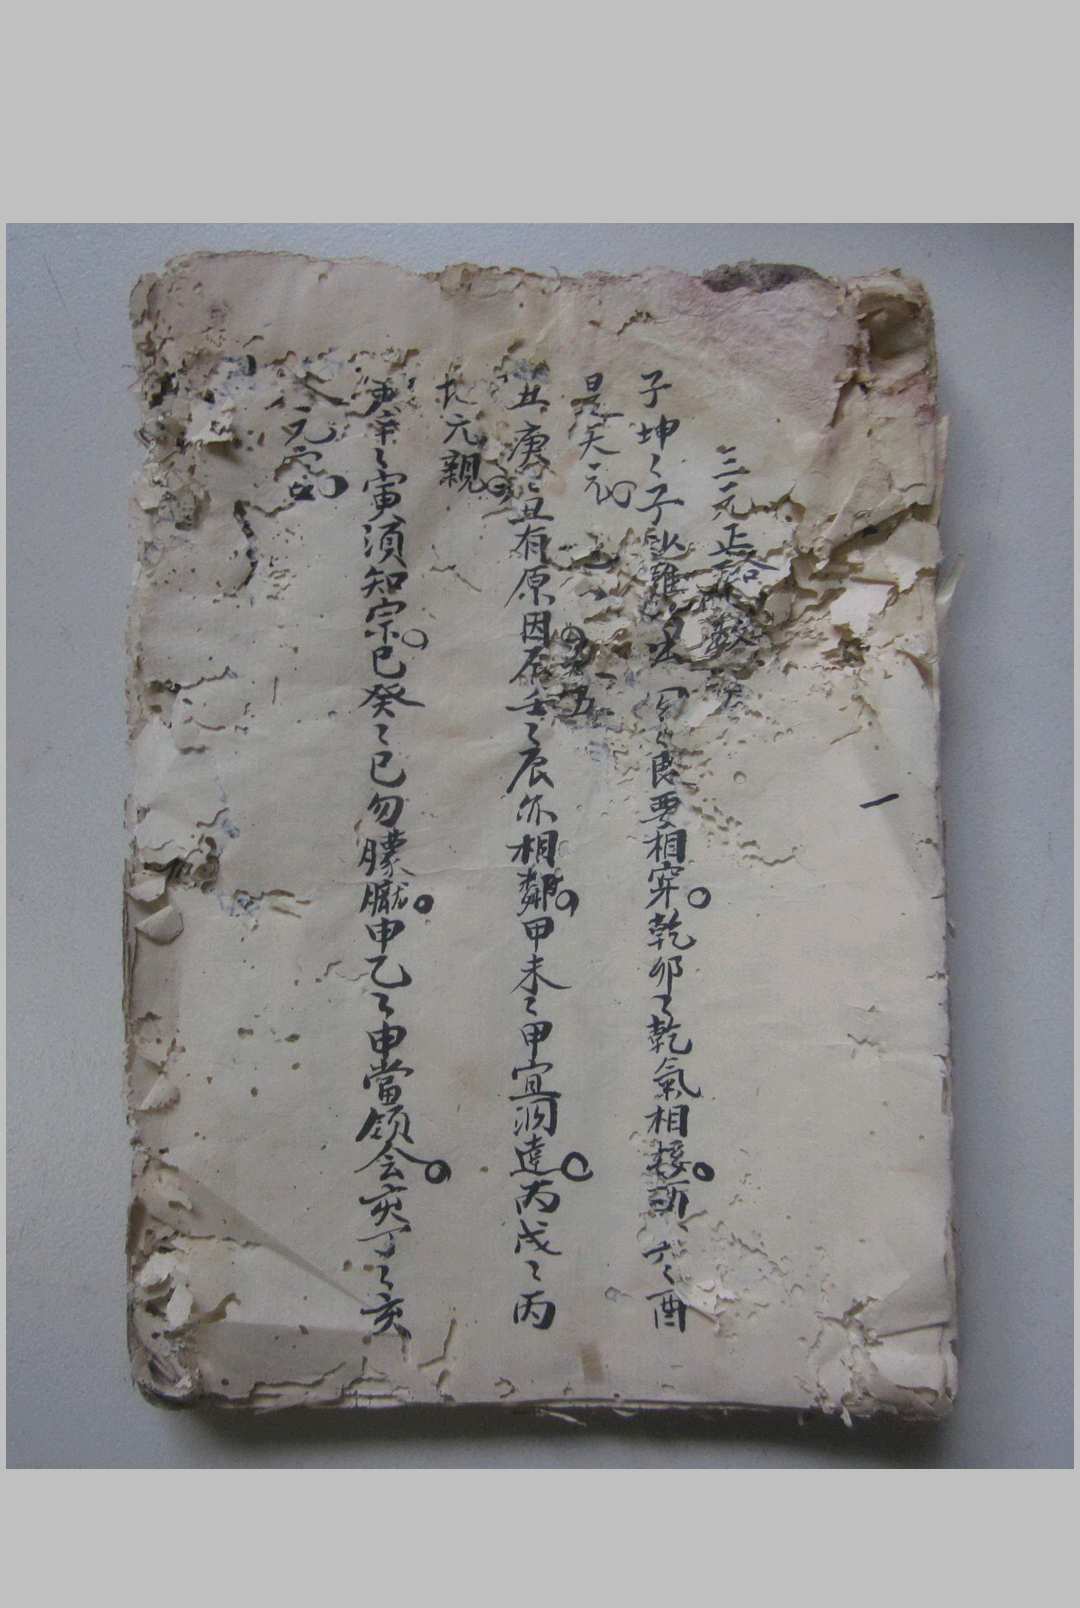 三元正
子坤〻子 艮要相穿。乾卯〻乾氣相接。 六〻酉
是天元。
丑庚〻丑有原因。辰壬〻辰亦相鄰。甲未〻甲宜洞達。丙戌〻丙
元親。
寅須知宗。巳癸〻巳勿朦朧。申乙〻申當領会。亥丁〻亥
人元宮。